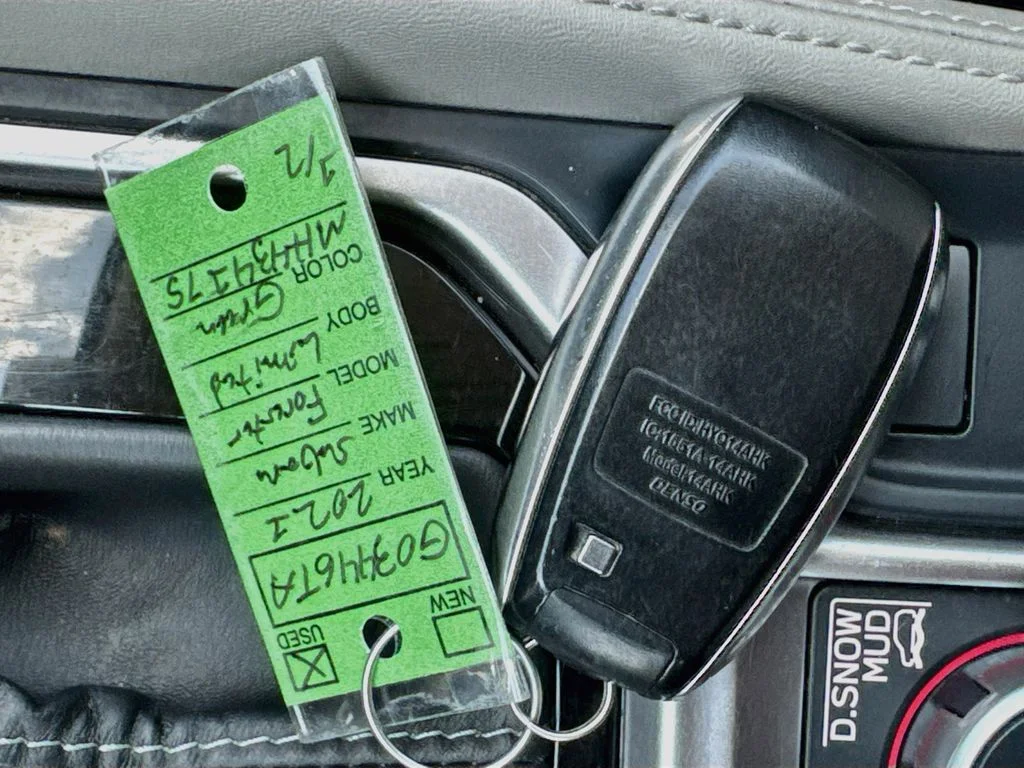 NEW USED
G03446TA
YEAR 2021
MAKE Subaru
MODEL Forester
BODY Limited
COLOR Green
MH434175
1/2
FCC ID:HYQ14AHK
IC:1551A-14AHK
Model:14AHK
DENSO
D.SNOW
MUD